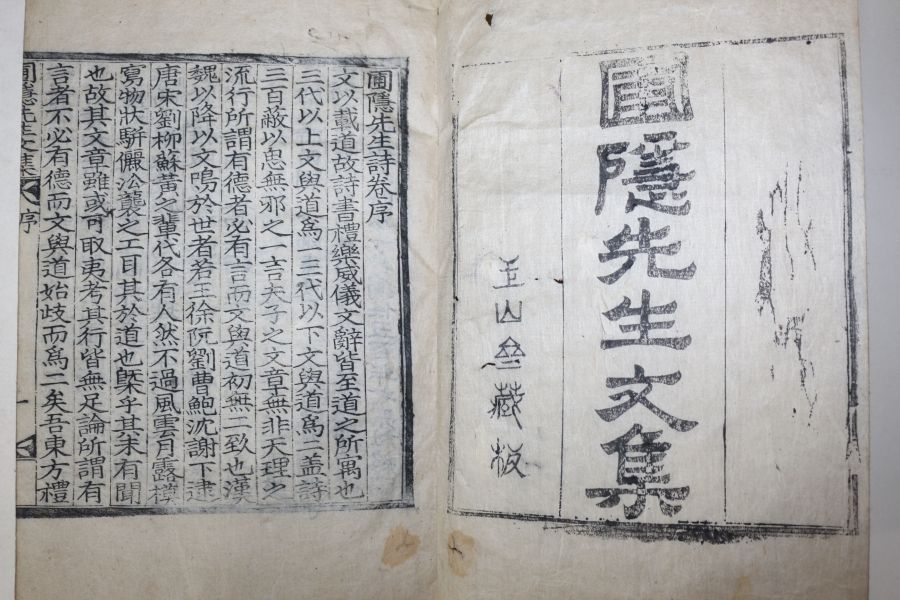 圃隱先生文集
玉山 藏板
圃隱先生詩卷序
文以載道故詩書禮樂威儀文辭皆至道之所寓也
三代以上文與道爲一三代以下文與道爲二盖詩
三百蔽以思無邪之一言夫子之文章無非天理之
流行所謂有德者必有言而文與道初無二致也漢
魏以降以文鳴於世者若王徐阮劉曹鮑沈謝下逮
唐宋劉柳蘇黃之輩代各有人然不過風雲月露模
寫物狀騈儷沿襲之工耳其於道也槩乎其未有聞
也故其文章雖或可取夷考其行皆無足論所謂有
言者不必有德而文與道始歧而爲二矣吾東方禮
圃隱先生文集 序